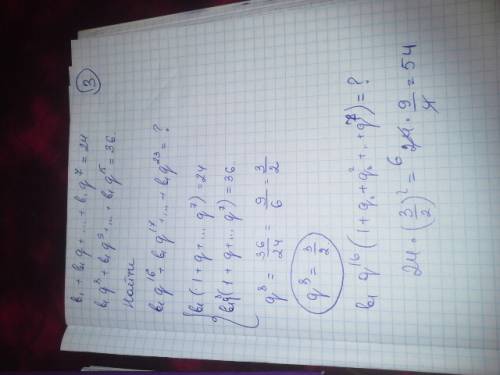 ③
b₁ + b₁q + ... + b₁q⁷ = 24
b₁q⁸ + b₁q⁹ + ... + b₁q¹⁵ = 36
Найти
b₁q¹⁶ + b₁q¹⁷ + ... + b₁q²³ = ?
{ b₁(1 + q + ... q⁷) = 24
b₁q⁸(1 + q + ... q⁷) = 36
q⁸ = 36/24 = 9/6 = 3/2
q⁸ = 3/2
b₁q¹⁶(1 + q + q² + ... + q⁷) = ?
24 · (3/2)² = 24 6 · 9/4 = 54